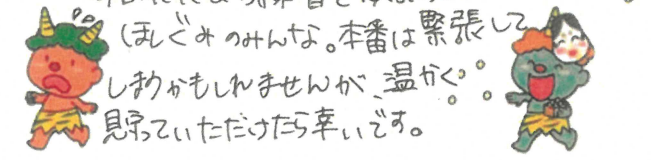 ほしぐみのみんな。本番は緊張して
しまうかもしれませんが、温かく
見守っていただけたら幸いです。